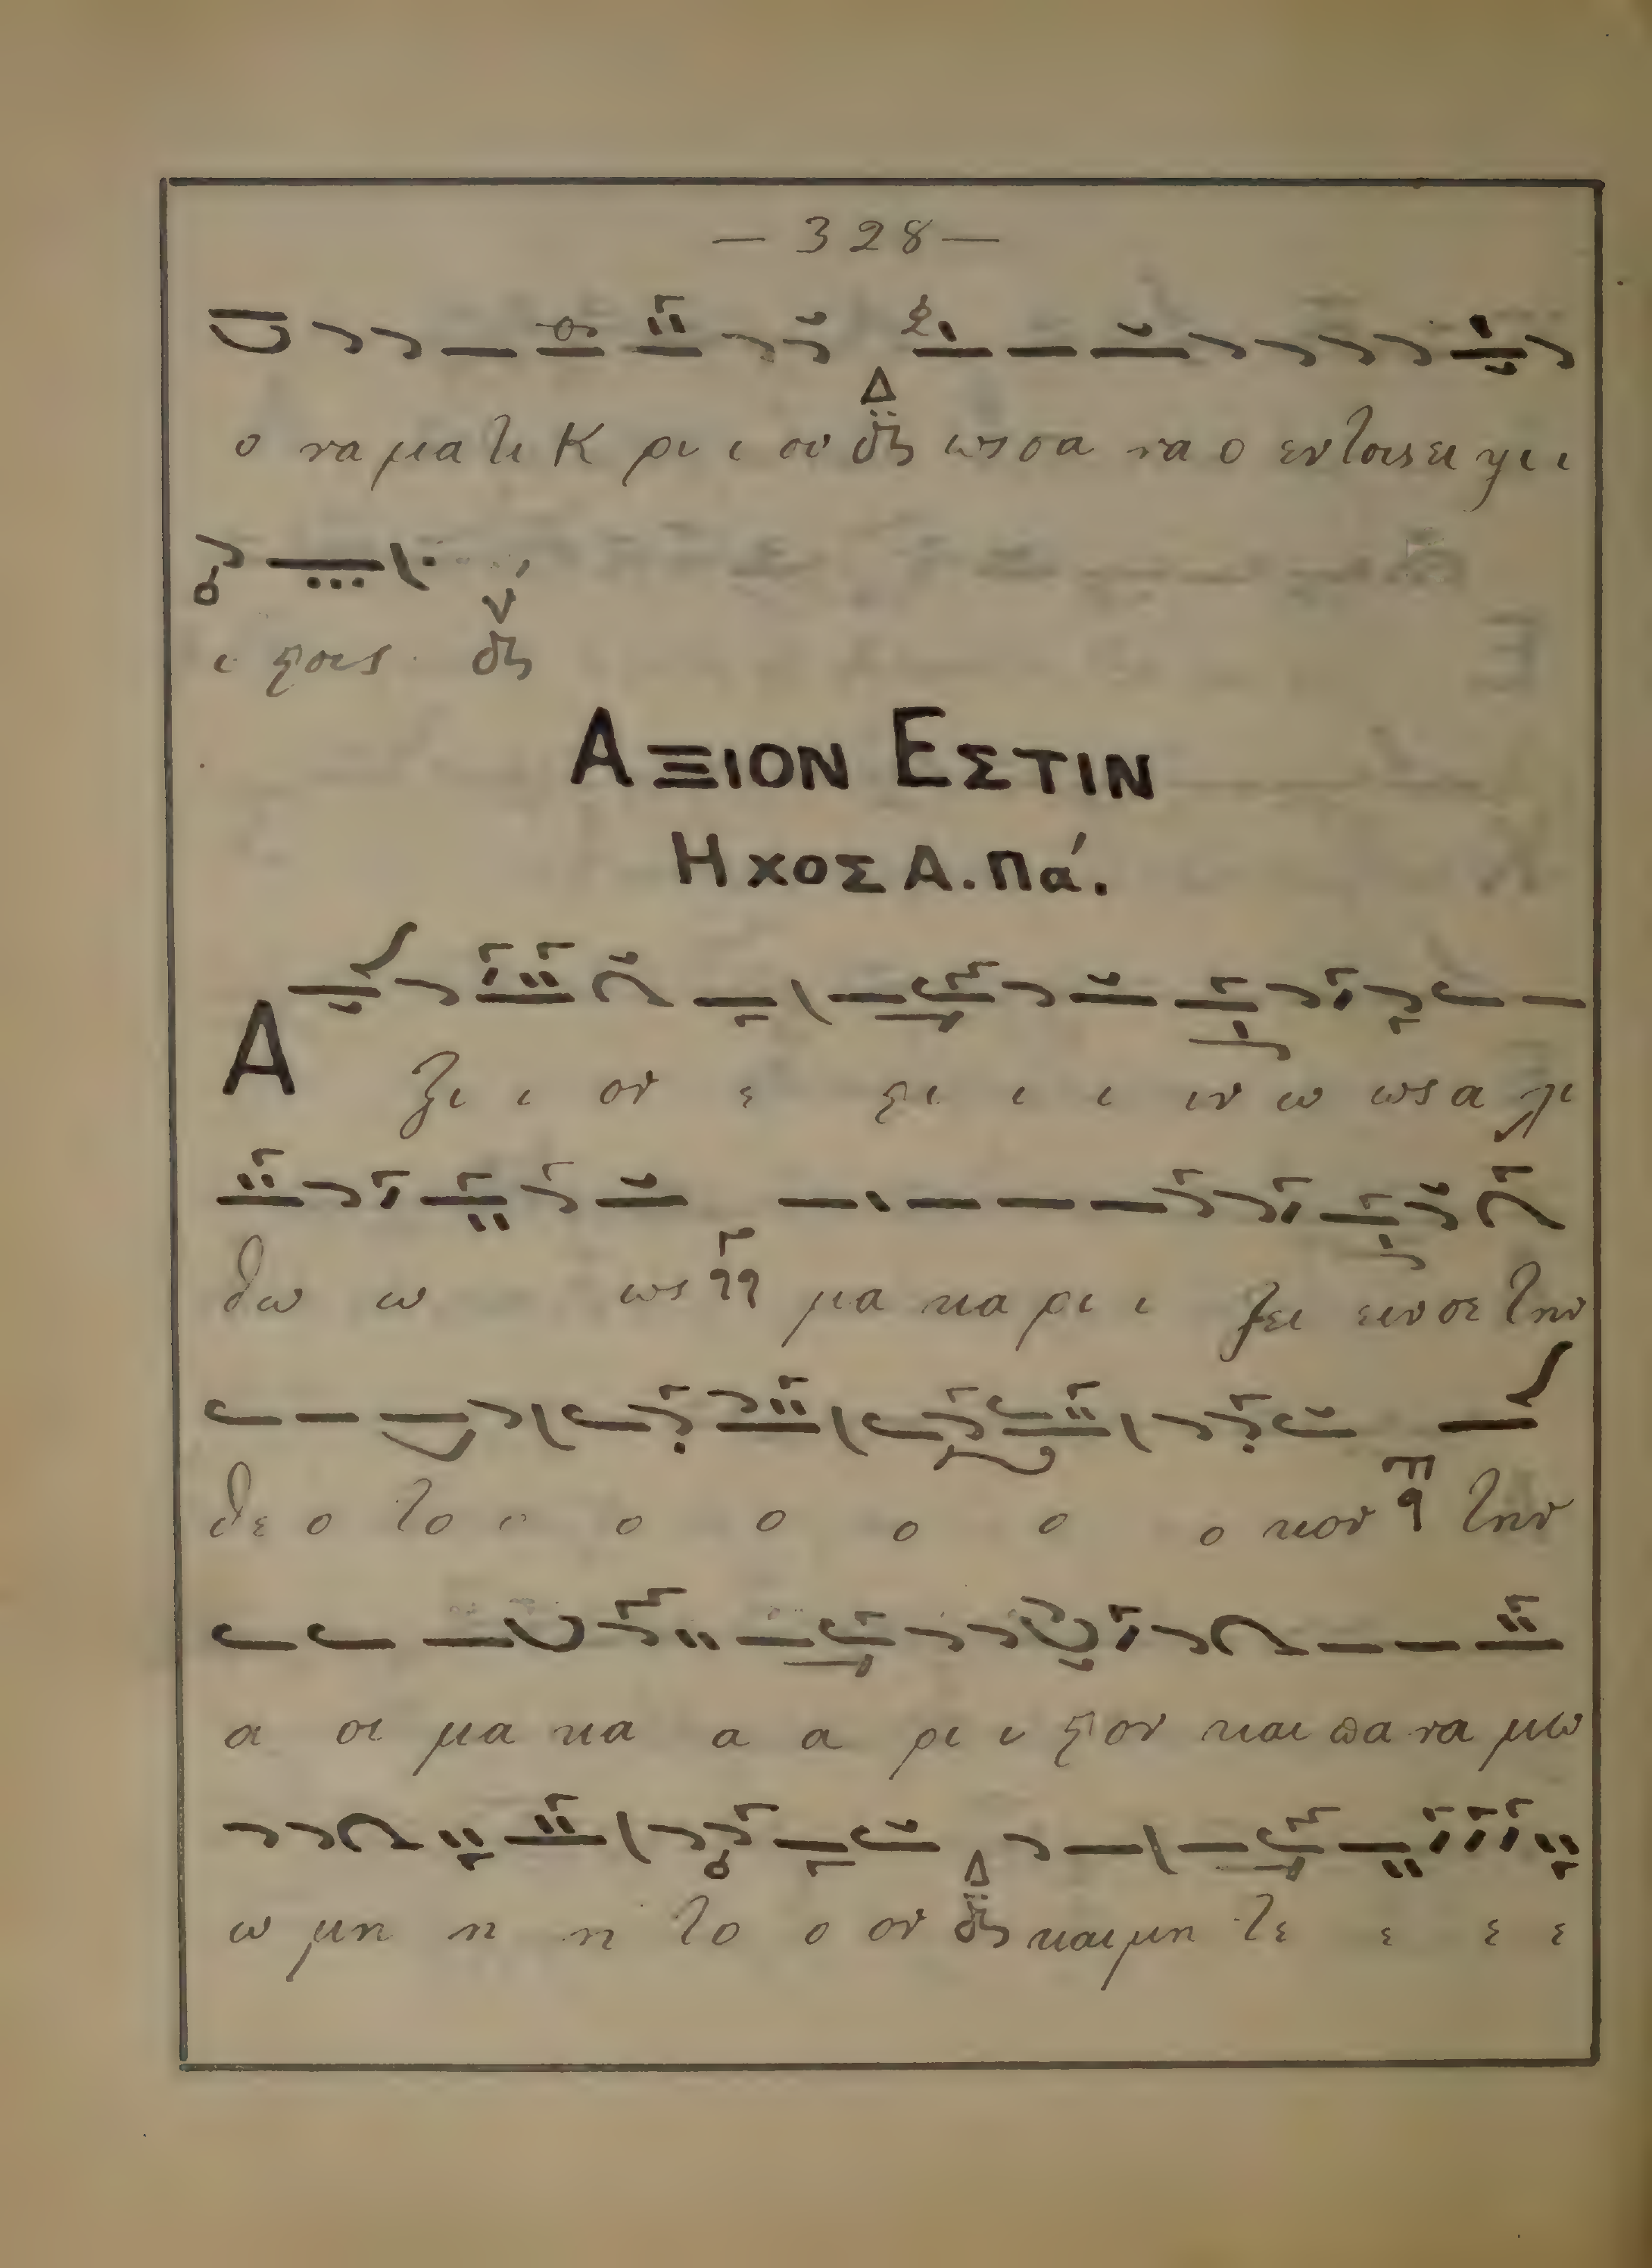 — 328 —
ο να μα τι Κ ρι ι ου Δ ως σα να ο εν τοις ει ψι ι
ι ϛοις
ΑΞΙΟΝ ΕΣΤΙΝ
ΗΧΟΣ Α. Πά.
Α ξι ι ον ε ϛι ι ι ιν ω ως α λη
θω ω ως μα κα ρι ι ζει ειν σε την
θε ο το ο ο ο ο ο ο κον την
α οι μα κα α α ρι ι ϛον και πα να μω
ω μη η η το ο ον Δ και μη τε ε ε ε